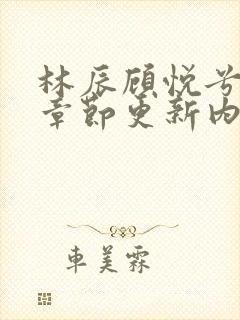 林辰顾悦兮
章节更新内
车美霖